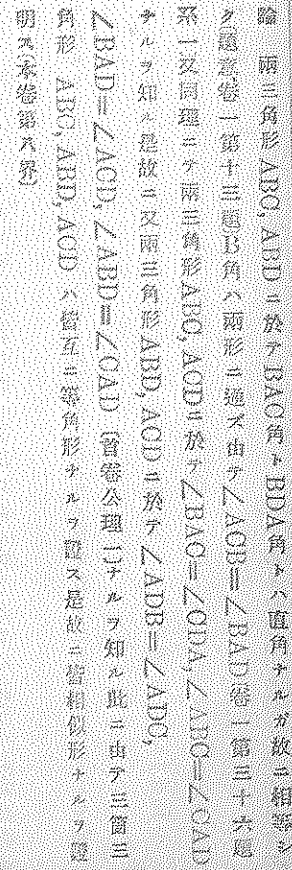 論 兩三角形 ABC, ABD ニ於テ BAC角ト BDA角トハ直角ナルガ故ニ相等シ
ク題意、卷一第十三題B角ハ兩形ニ通ズ由テ∠ACB=∠BAD卷一第三十六題
系一又同理ニテ兩三角形ABC, ACDニ於テ∠BAC=∠CDA, ∠ABC=∠CAD
ナルヲ知ル是故ニ又兩三角形ABD, ACDニ於テ∠ADB=∠ADC,
∠BAD=∠ACD, ∠ABD=∠CAD（首卷公理一）ナルヲ知ル此ニ由テ三箇三
角形 ABC, ABD, ACD ハ皆互ニ等角形ナルヲ證ス是故ニ皆相似形ナルヲ證
明ス（本卷第八界）